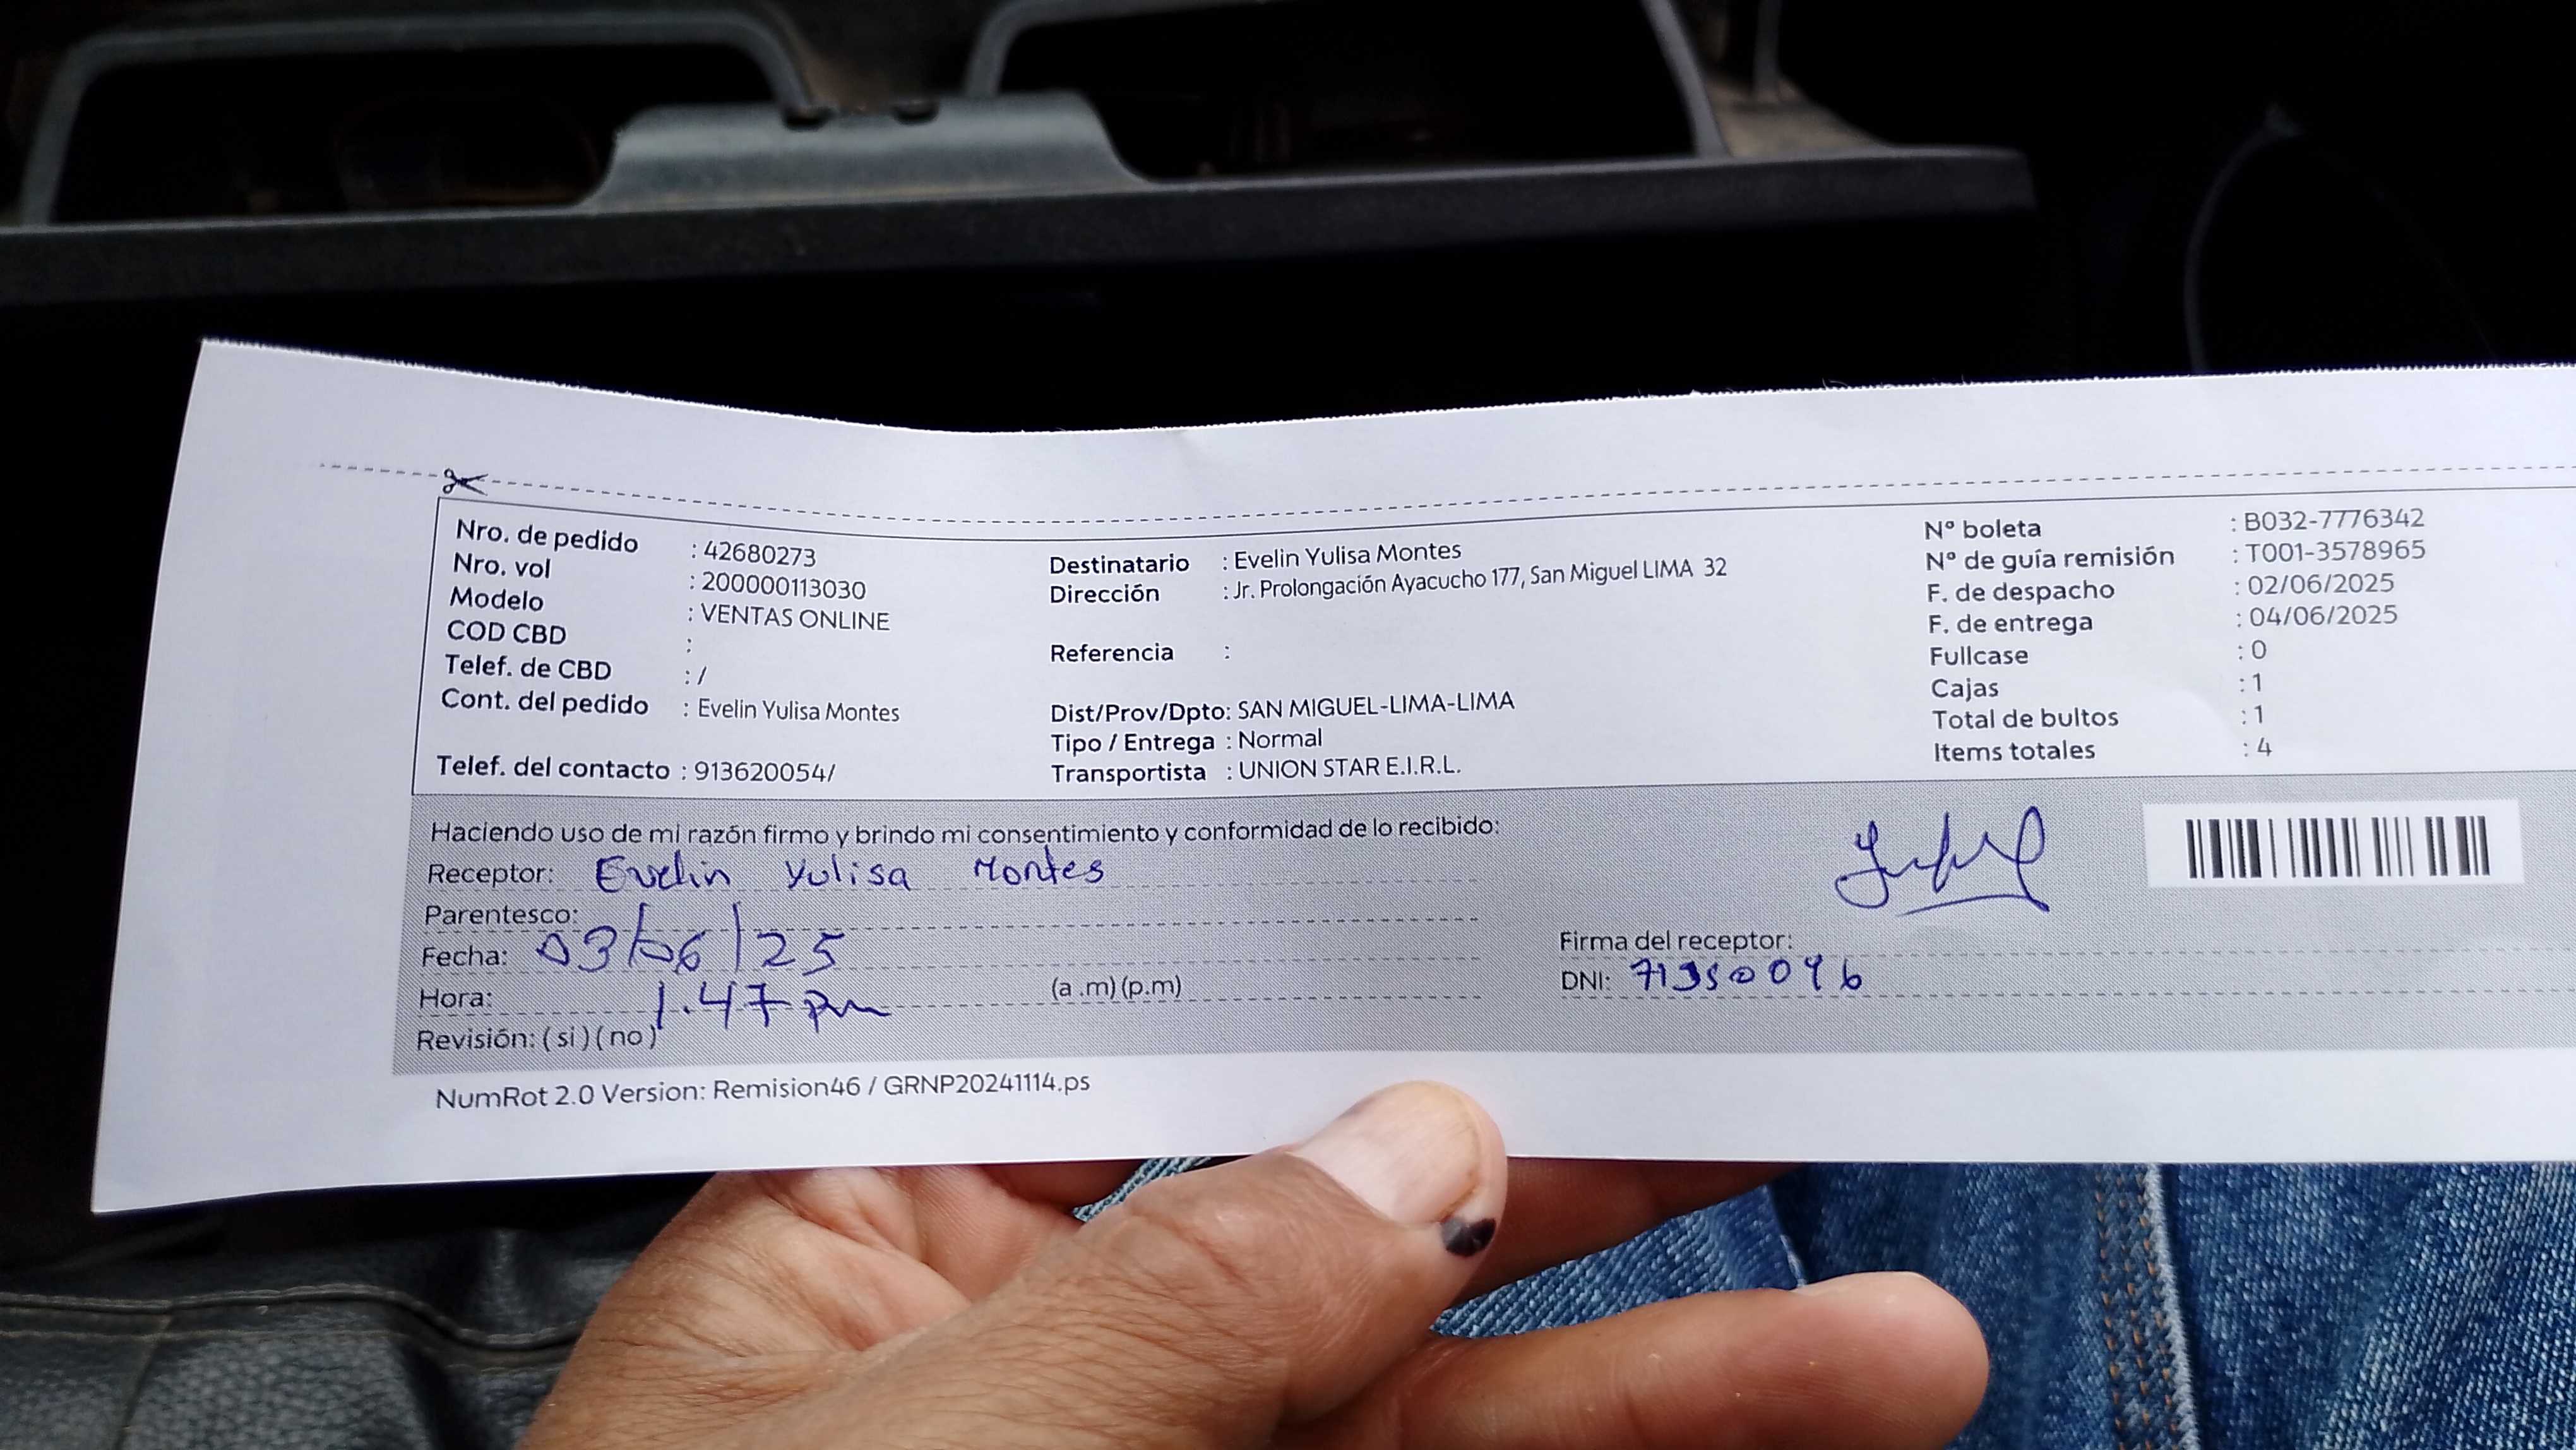 Nro. de pedido : 42680273
Nro. vol : 200000113030
Modelo : VENTAS ONLINE
COD CBD :
Telef. de CBD : /
Cont. del pedido : Evelin Yulisa Montes
Telef. del contacto : 913620054/
Destinatario : Evelin Yulisa Montes
Dirección : Jr. Prolongación Ayacucho 177, San Miguel LIMA 32
Referencia :
Dist/Prov/Dpto: SAN MIGUEL-LIMA-LIMA
Tipo / Entrega : Normal
Transportista : UNION STAR E.I.R.L.
N° boleta : B032-7776342
N° de guía remisión : T001-3578965
F. de despacho : 02/06/2025
F. de entrega : 04/06/2025
Fullcase : 0
Cajas : 1
Total de bultos : 1
Items totales : 4
Haciendo uso de mi razón firmo y brindo mi consentimiento y conformidad de lo recibido:
Receptor: Evelin Yulisa Montes
Parentesco:
Fecha: 03/06/25
Hora: 1.47 pm (a .m) (p.m)
Revisión: ( si ) ( no )
Firma del receptor:
DNI:
NumRot 2.0 Version: Remision46 / GRNP20241114.ps